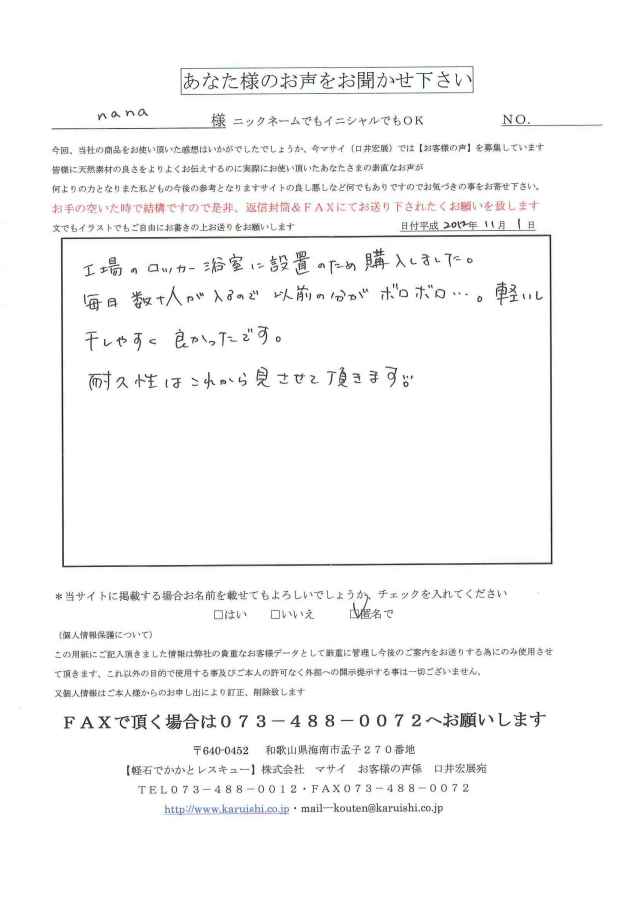 あなた様のお声をお聞かせ下さい
nana 様 ニックネームでもイニシャルでもOK NO.
今回、当社の商品をお使い頂いた感想はいかがでしたでしょうか、今マサイ（口井宏展）では【お客様の声】を募集しています
皆様に天然素材の良さをよりよくお伝えするのに実際にお使い頂いたあなたさまの素直なお声が
何よりの力となりまた私どもの今後の参考となりますサイトの良し悪しなど何でもありですのでお気づきの事をお寄せ下さい。
お手の空いた時で結構ですので是非、返信封筒＆ＦＡＸにてお送り下されたくお願いを致します
文でもイラストでもご自由にお書きの上お送りをお願いします 日付平成 2012年 11月 1日
工場のロッカー浴室に設置のため購入しました。
毎日数十人が入るので以前の分がボロボロ…。軽いし
干しやすく良かったです。
耐久性はこれから見させて頂きます。
＊当サイトに掲載する場合お名前を載せてもよろしいでしょうか、チェックを入れてください
□はい □いいえ ☑匿名で
（個人情報保護について）
この用紙にご記入頂きました情報は弊社の貴重なお客様データとして厳重に管理し今後のご案内をお送りする為にのみ使用させ
て頂きます、これ以外の目的で使用する事及びご本人の許可なく外部への開示提示する事は一切ございません、
又個人情報はご本人様からのお申し出により訂正、削除致します
ＦＡＸで頂く場合は０７３－４８８－００７２へお願いします
〒640-0452 和歌山県海南市孟子２７０番地
【軽石でかかとレスキュー】株式会社 マサイ お客様の声係 口井宏展宛
ＴＥＬ０７３－４８８－００１２・ＦＡＸ０７３－４８８－００７２
http://www.karuishi.co.jp・mail―kouten@karuishi.co.jp